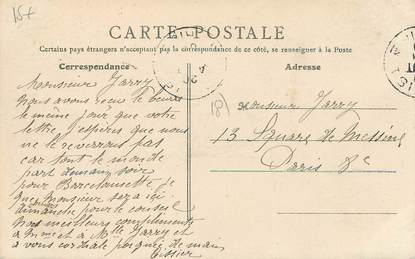 15+
CARTE POSTALE
Certains pays étrangers n'acceptant pas la correspondance de ce côté, se renseigner à la Poste
Correspondance
Adresse
Monsieur Jarry
nous avons reçu le beurre
le même jour que votre
lettre j'espères que nous
ne le reverrons pas
car tout le monde
part demain soir
pour Barcelonnette, je
que Monsieur sera ici
dimanche pour le conseil
nos meilleurs compliments
à Mme et à Mlle Jarry et
à vous cordiale poignée de main
Tissier
18)
Monsieur Jarry
13 Square de Messine
Paris 8e